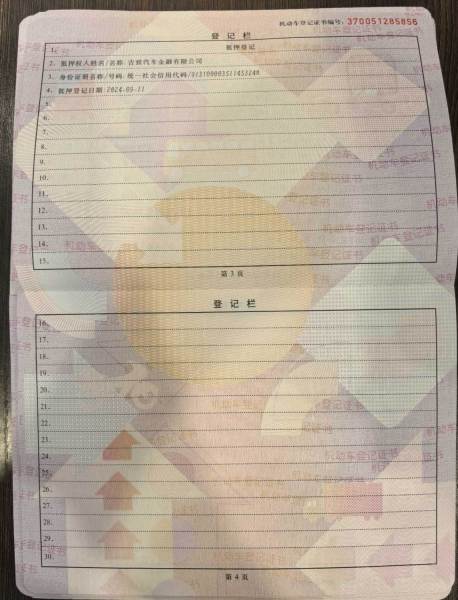 机动车登记证书编号: 370051285856
登记栏
1. 抵押登记
2. 抵押权人姓名/名称:吉致汽车金融有限公司
3. 身份证明名称/号码:统一社会信用代码/
4. 抵押登记日期:2024-09-11
5.
6.
7.
8.
9.
10.
11.
12.
13.
14.
15.
第 3 页
登记栏
16.
17.
18.
19.
20.
21.
22.
23.
24.
25.
26.
27.
28.
29.
30.
第 4 页